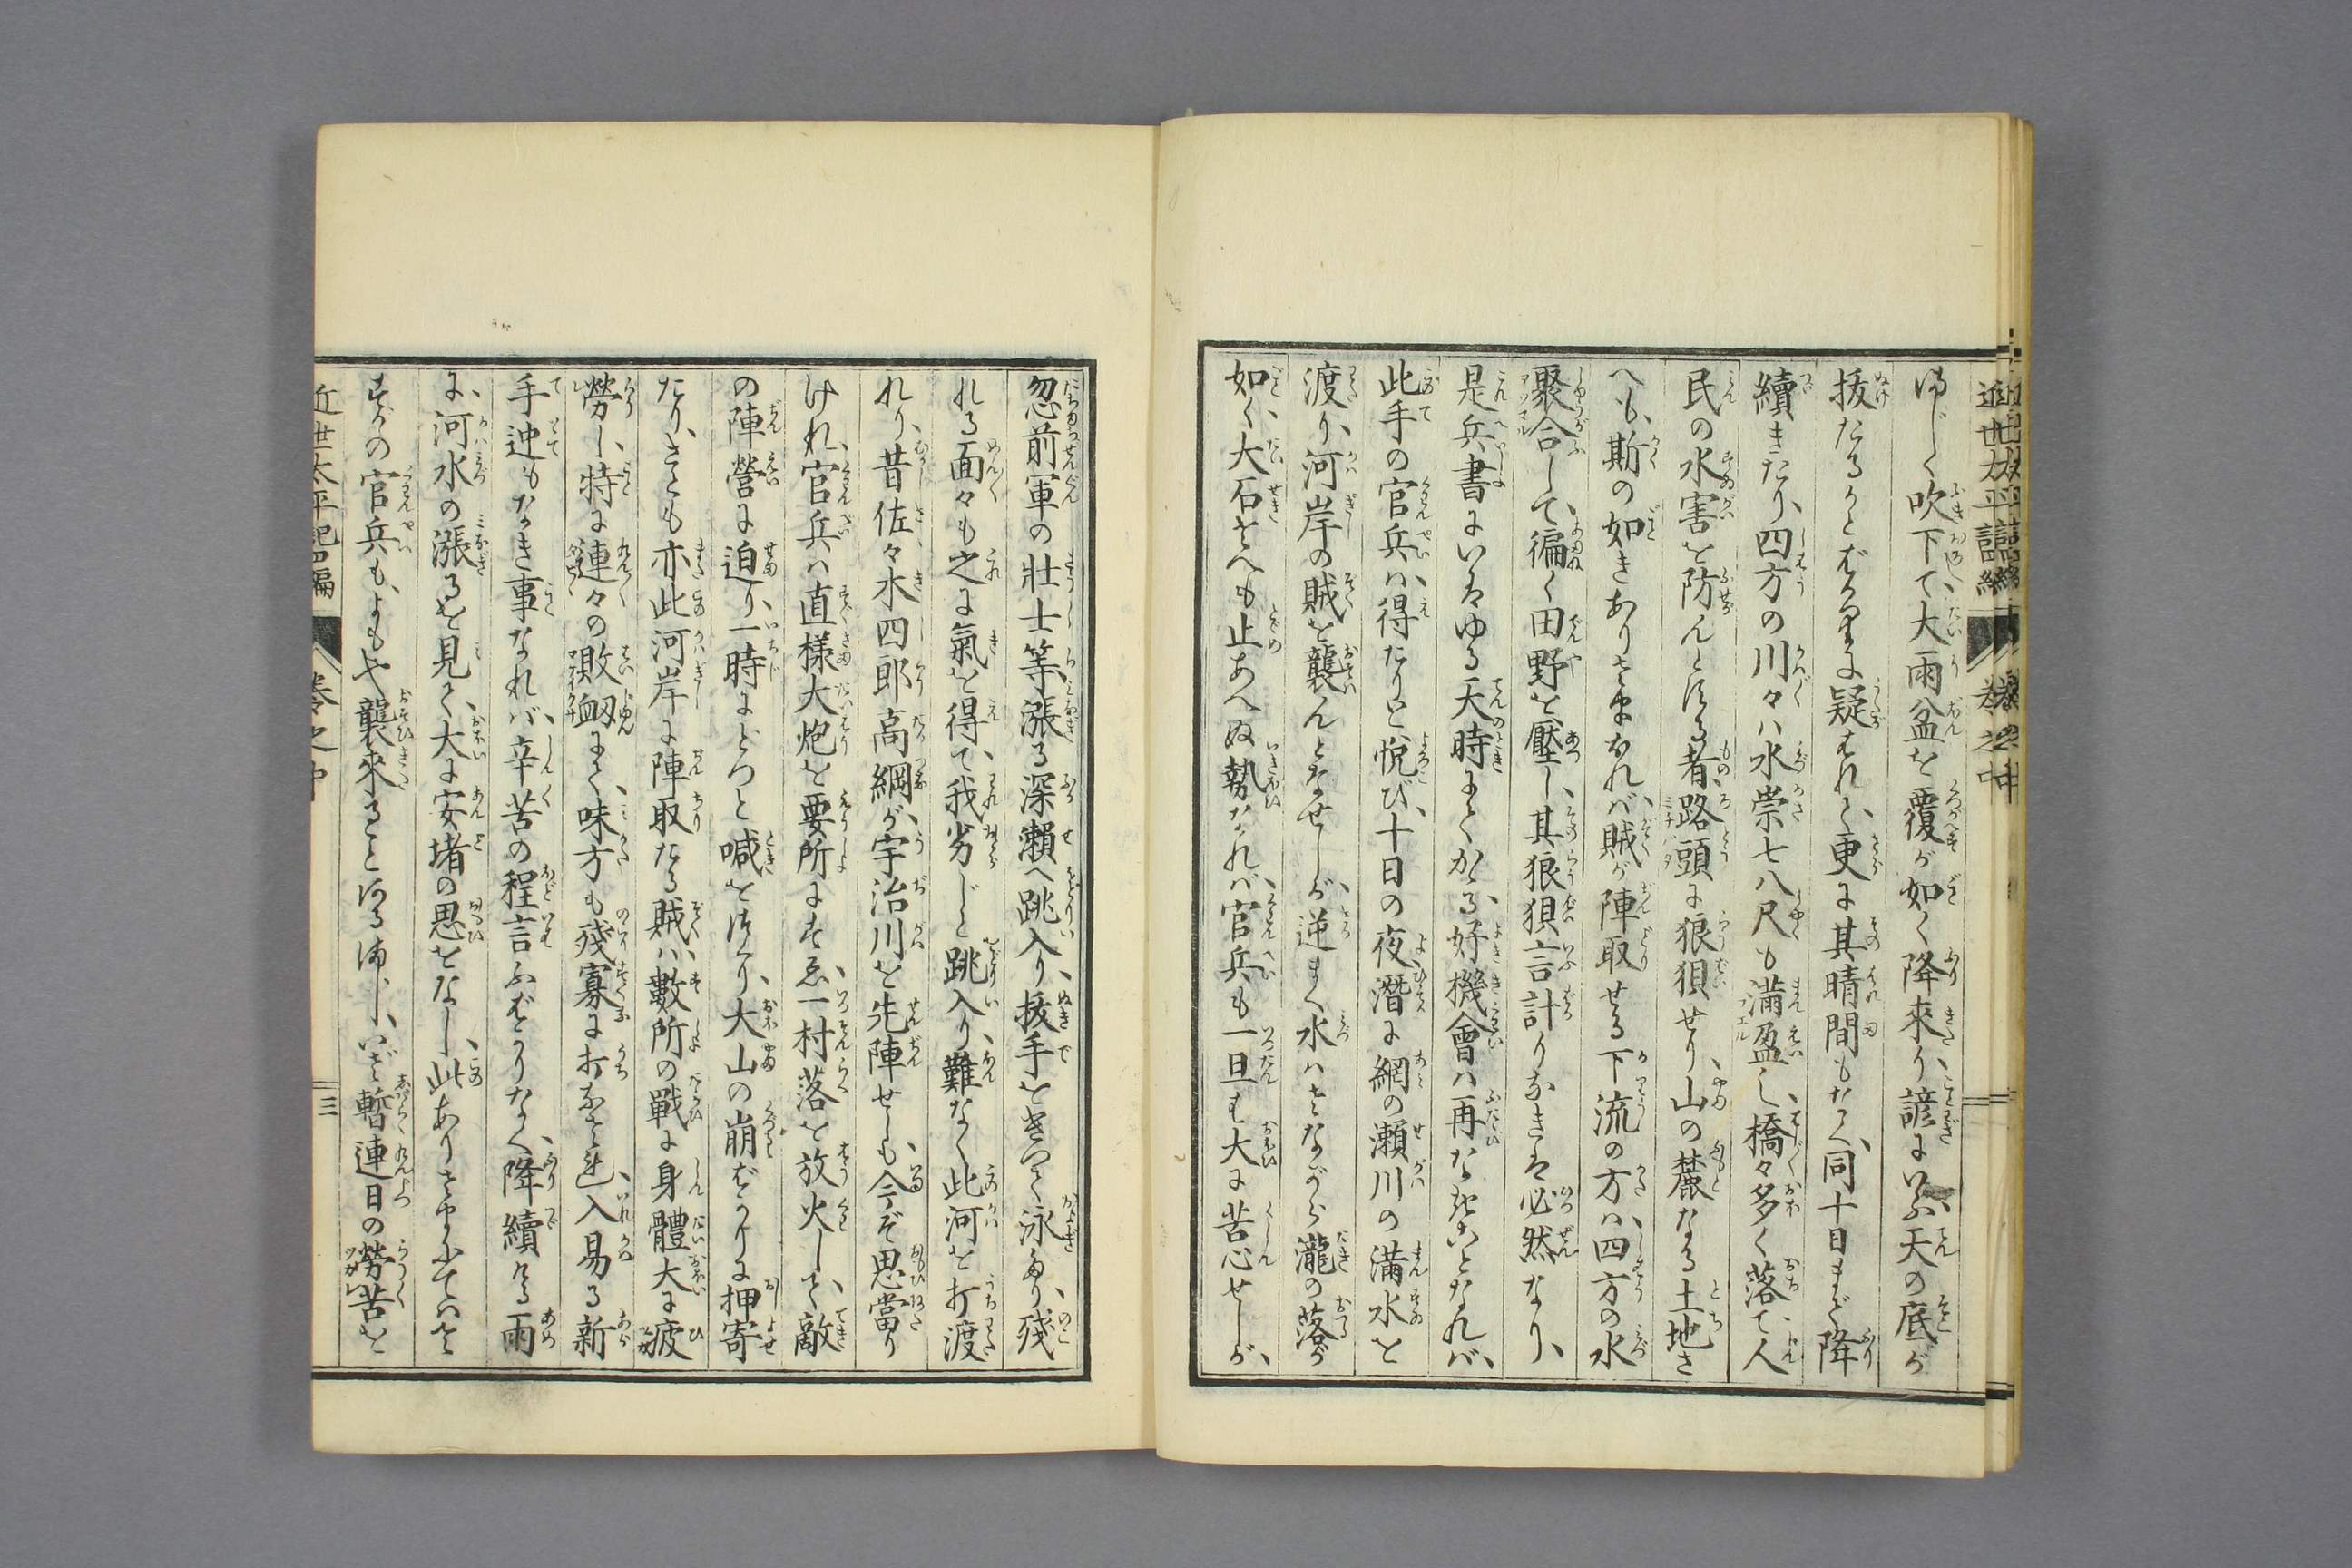 ゆじく吹下て、大雨盆を覆が如く降來り、諺にいふ天の底が
抜たるかとばかりに疑はれ、更に其晴間もなく、同十日まで降
續きたり、四方の川々ハ水崇七八尺も滿盈し、橋々多く落て、人
民の水害を防んとする者、路頭に狼狽せり、山の麓なる土地さ
へも、斯の如きありさまなれバ、賊が陣取せる下流の方ハ、四方の水
聚合して、徧く田野を壓し、其狼狽言計りなきは必然なり、
是兵書にいはゆる天時にしてかゝる好機會ハ再なきことなれバ、
此手の官兵ハ、得たりと悦び、十日の夜潛に網の瀬川の滿水を
渡り、河岸の賊を襲んとなせしが、逆まく水ハさながら瀧の落が
如く、大石さへも止あへぬ勢なれバ、官兵も一旦は大に苦心せしが、
近世太平記四編 巻之中
忽前軍の壯士等、漲る深瀬へ跳入り、拔手をきつて泳ぬり、殘
れる面々も之に氣を得て、我劣じと跳入り、難なく此河を打渡
れり、昔佐々木四郎高綱が、宇治川を先陣せしも、今ぞ思當り
けれ、官兵ハ直樣大炮を要所にすゑ、一村落を放火して、敵
の陣營に迫り、一時にどつと喊を作り、大山の崩ばかりに押寄
たり、さても亦此河岸に陣取たる賊ハ、數所の戰に身體大に疲
勞し、特に連々の敗衂にて、味方も殘寡に打なされ、入易る新
手迚もなき事なれバ、辛苦の程言ふばかりなく、降續ける雨
に、河水の漲るを見て、大に安堵の思をなし、此ありさまにてハさ
すがの官兵も、よもや襲來ることはあるまじ、いざ暫連日の勞苦を
近世太平記四編 巻之中 三